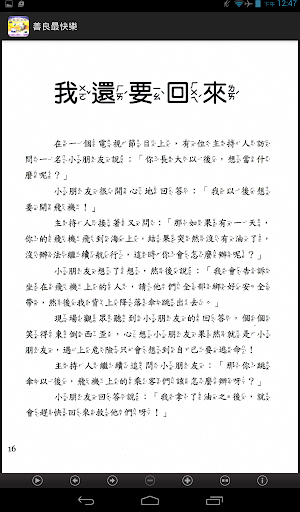 下午 12:47
善良最快樂
我還要回來
在一個電視節目上，有位主持人訪
問一名小朋友說：「你長大以後，想當什
麼呢？」
小朋友很開心地回答：「我以後想
要開飛機！」
主持人接著又問：「那如果有一天，
你的飛機飛到海上，結果突然沒有油了，
沒辦法繼續航行，這時你會怎麼辦呢？」
小朋友想了想，然後說：「我會告訴
坐在飛機上的人，請他們全都綁好安全
帶，然後我背上降落傘跳出去。」
現場觀眾聽到小朋友的回答，個個
笑得東倒西歪，心想小朋友果然就是小
朋友，遇上危險只會想到自己要逃命！
主持人繼續追問小朋友：「那你跳
傘以後，飛機上的乘客們該怎麼辦呀？」
小朋友回答說：「我拿了油之後，就
會趕快回來救他們呀！」
16